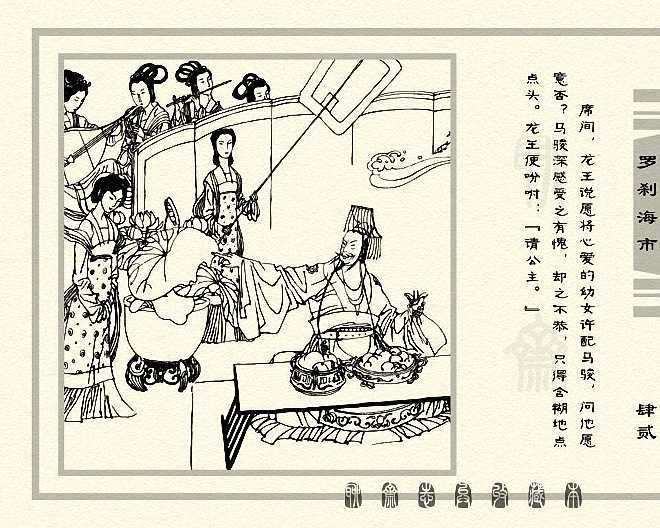 罗刹海市
肆贰
席间，龙王说愿将心爱的幼女许配马骏，问他愿
意否？马骏深感受之有愧，却之不恭，只得含糊地点
点头。龙王便吩咐：「请公主。」